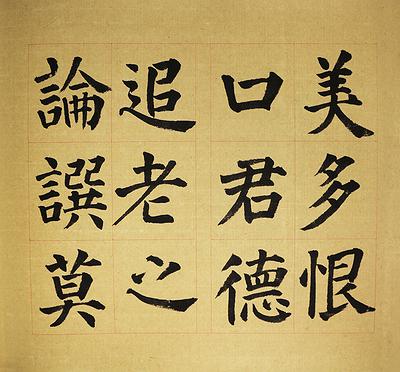 美多恨
口君德
追老之
論譔莫